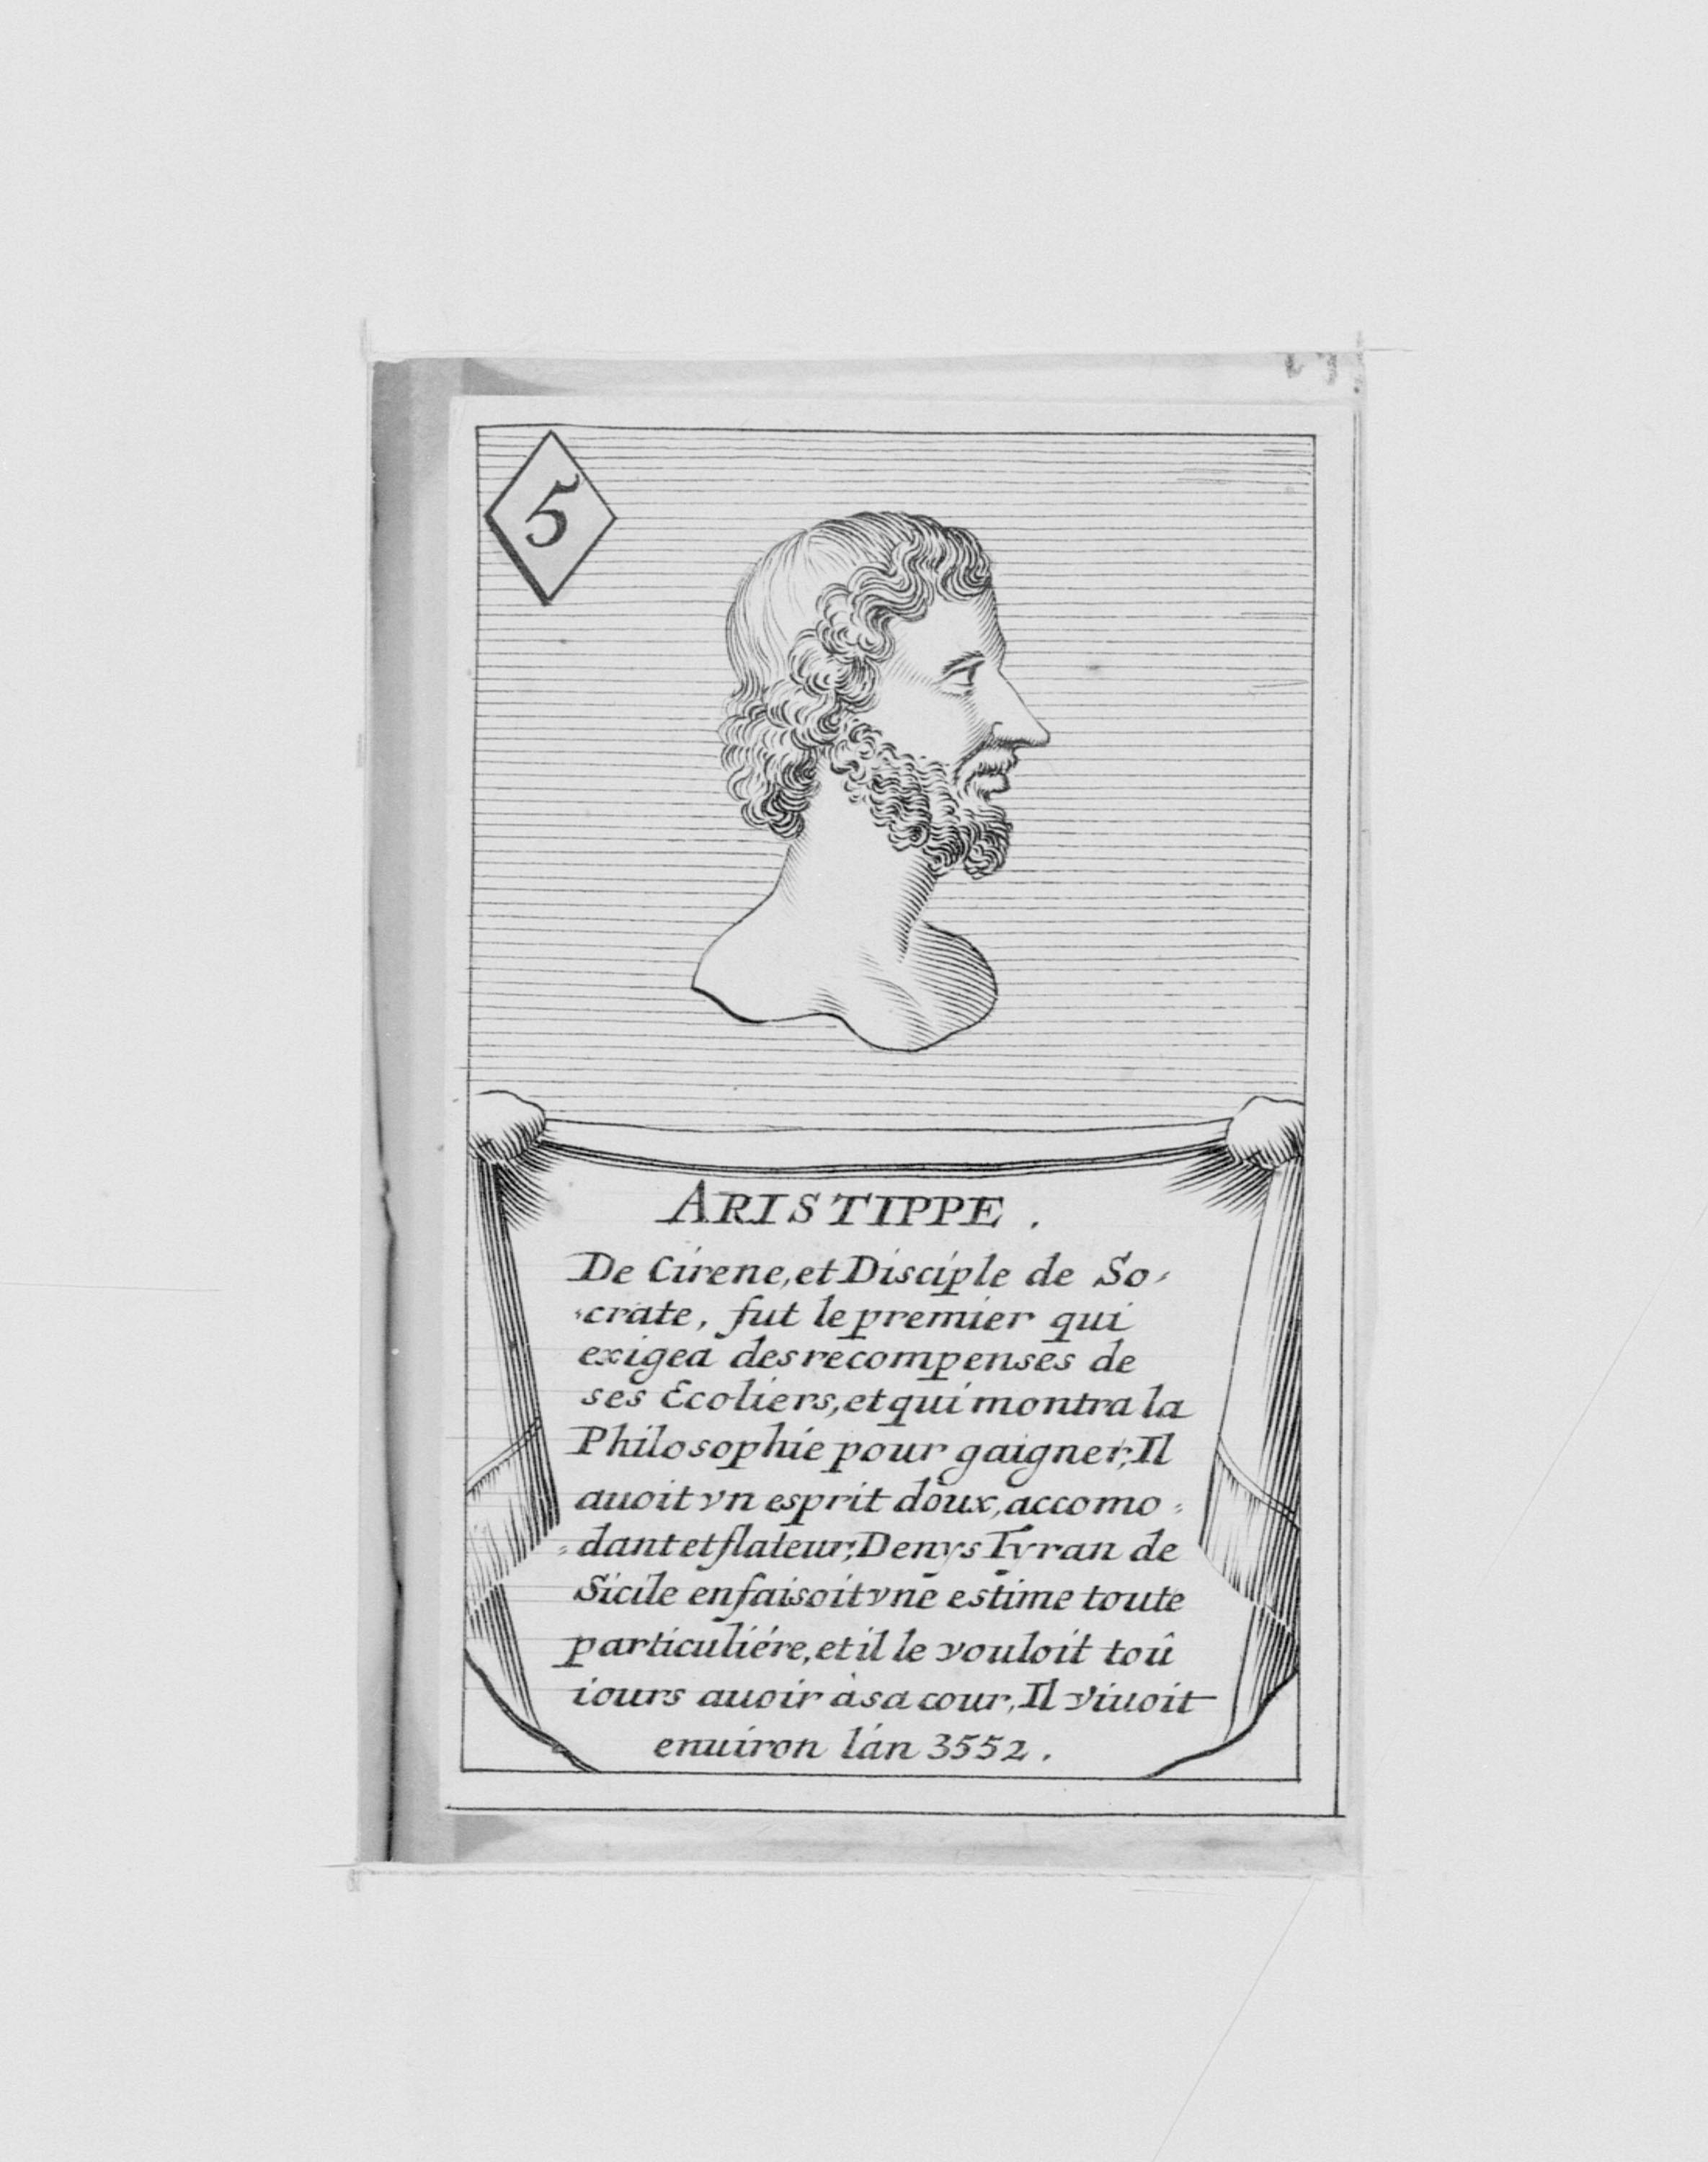 5
ARISTIPPE.
De Cirene, et Disciple de So-
-crate, fut le premier qui
exigea des recompenses de
ses Ecoliers, et qui montra la
Philosophie pour gaigner, Il
auoit vn esprit doux, accomo-
-dant et flateur; Denys Tyran de
Sicile en faisoit vne estime toute
particuliére, et il le vouloit toû
iours auoir à sa cour, Il viuoit
enuiron l'an 3552.